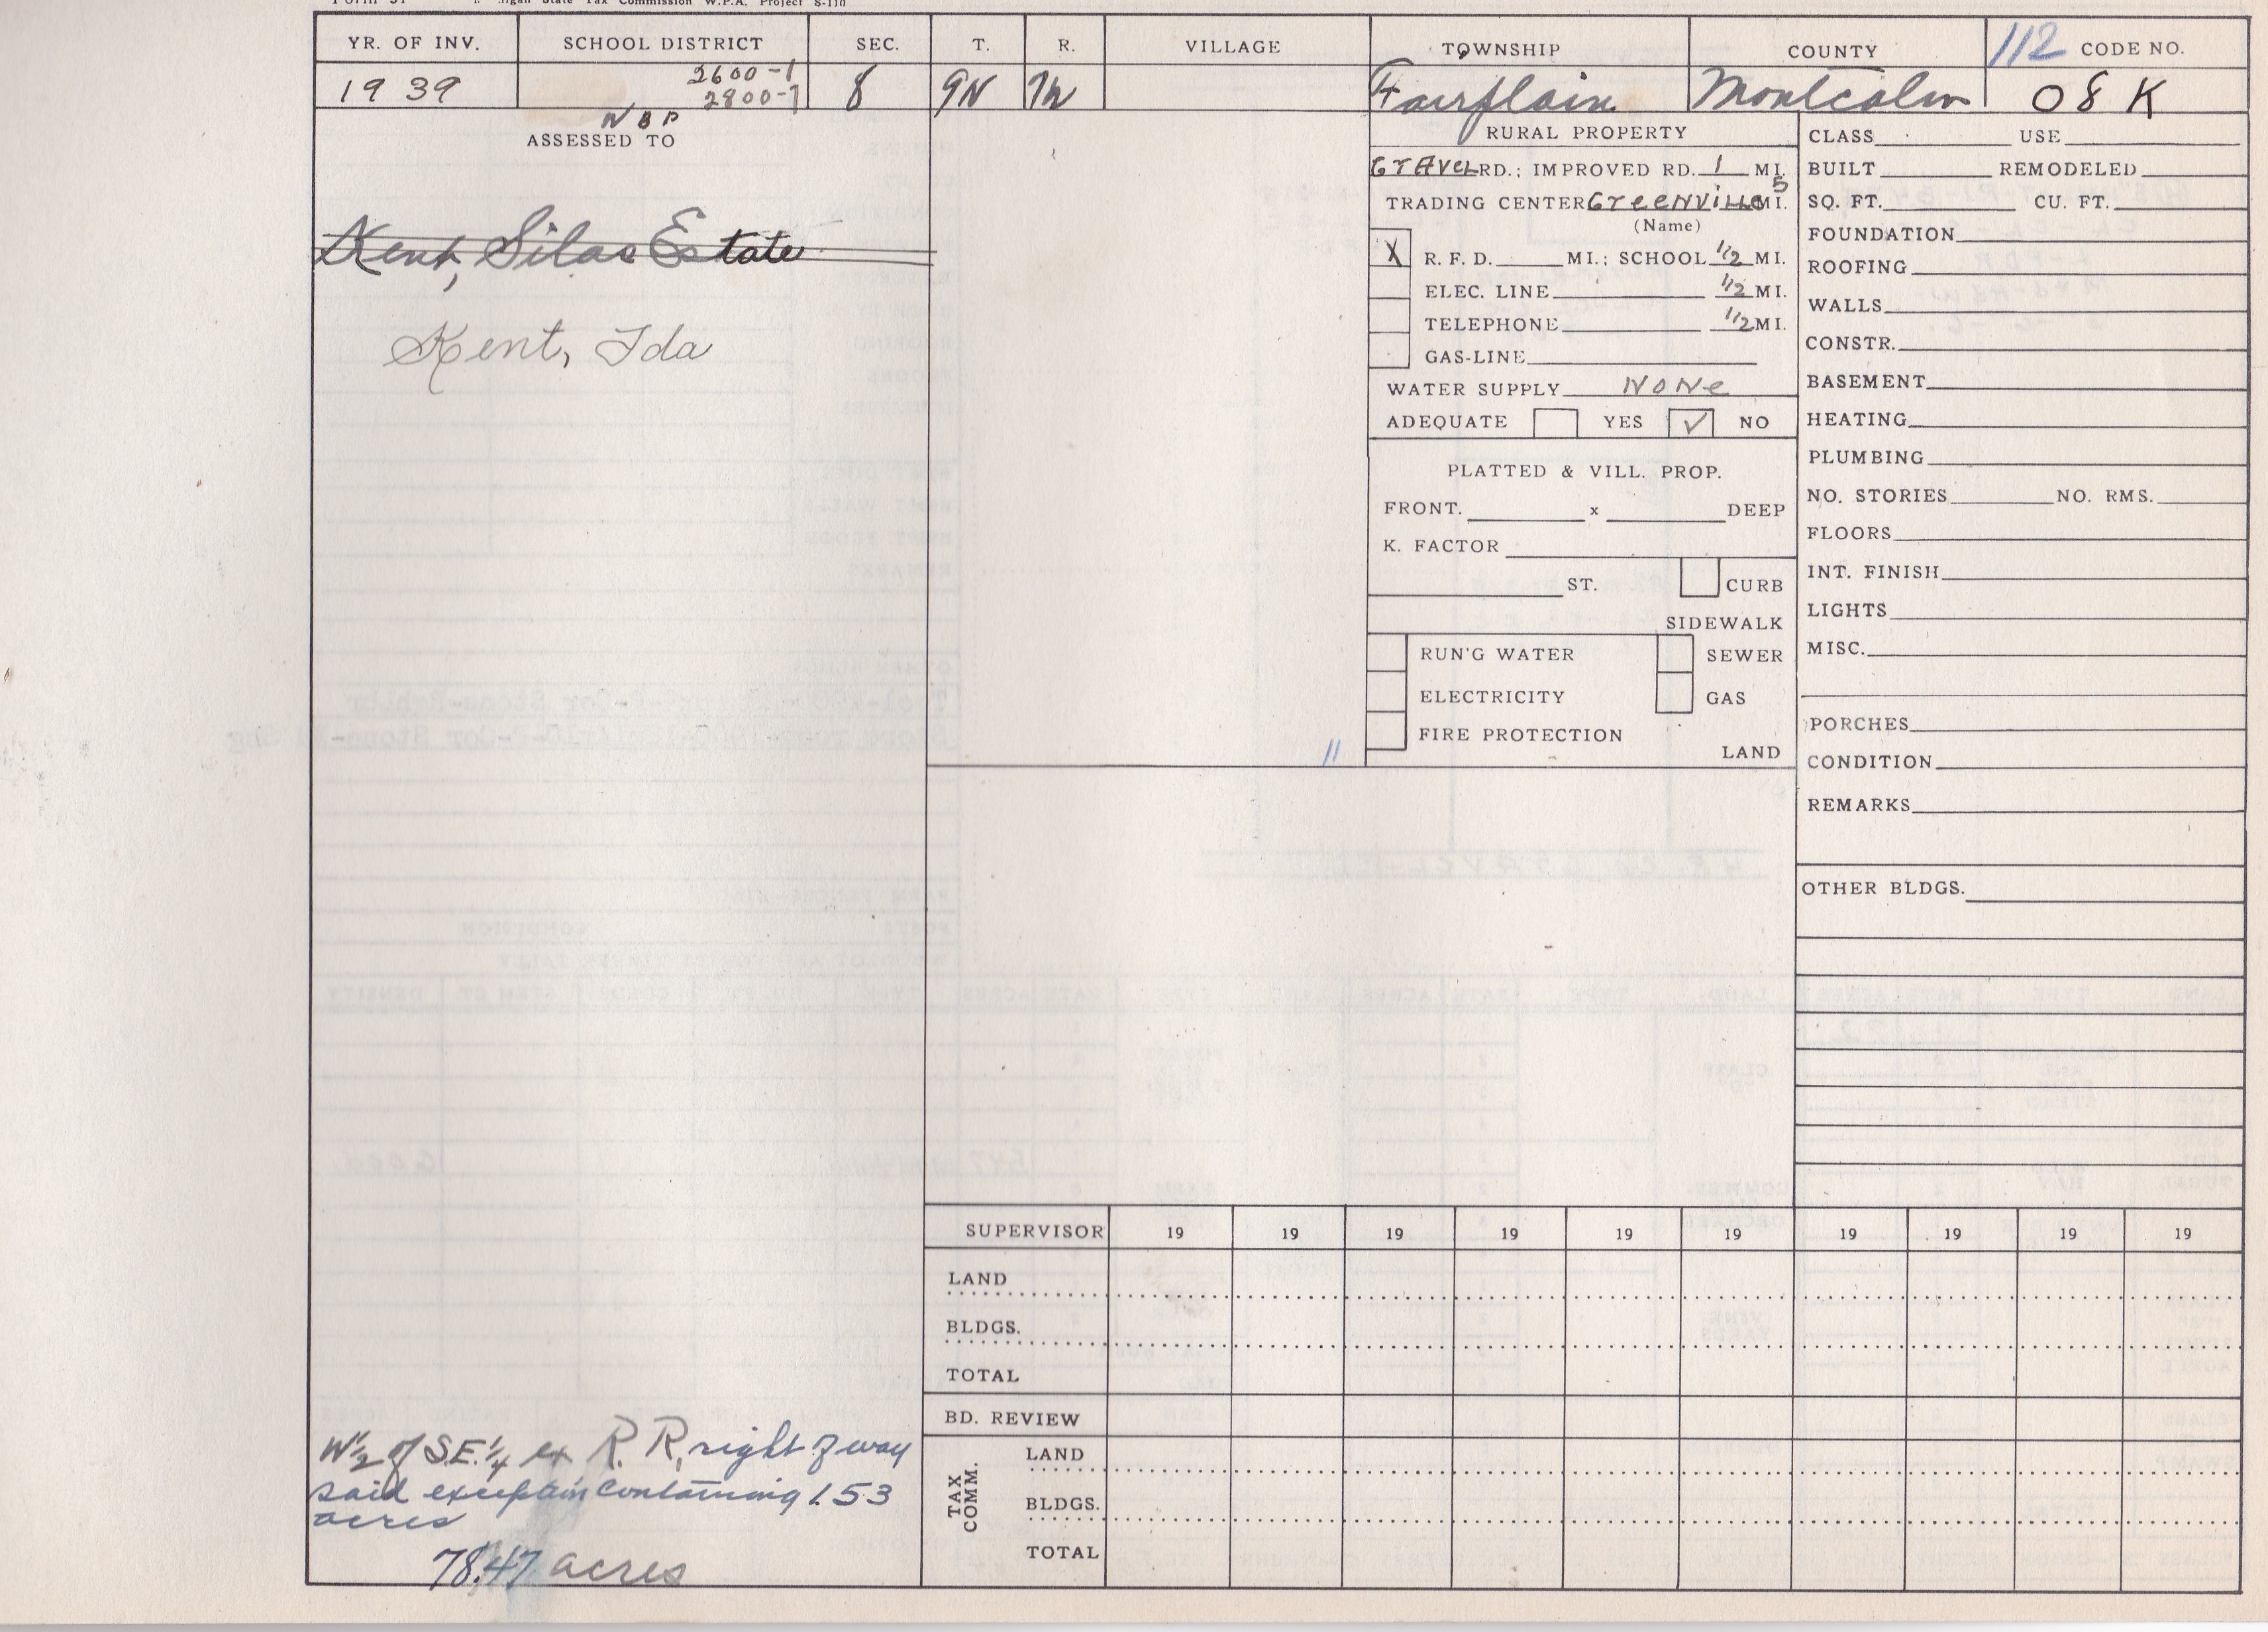 Michigan State Tax Commission W.P.A. Project S-110
YR. OF INV. SCHOOL DISTRICT SEC. T. R. VILLAGE TOWNSHIP COUNTY 112 CODE NO.
2600-1
1939 2800-7 8 9N 7W Fairplain Montcalm 08 K
ASSESSED TO
Kent, Silas Estate
Kent, Ida
W 1/2 of S.E. 1/4 ex R.R. right of way
said exception containing 1.53
acres
78.47 acres
RURAL PROPERTY
GrAveL RD.; IMPROVED RD. 1 MI.
TRADING CENTER GreeNviLLe 5 MI.
(Name)
X R. F. D. MI.; SCHOOL 1/2 MI.
ELEC. LINE 1/2 MI.
TELEPHONE 1/2 MI.
GAS-LINE
WATER SUPPLY NoNe
ADEQUATE YES ✓ NO
PLATTED & VILL. PROP.
FRONT. x DEEP
K. FACTOR
ST. CURB
SIDEWALK
RUN'G WATER SEWER
ELECTRICITY GAS
FIRE PROTECTION
11 LAND
CLASS USE
BUILT REMODELED
SQ. FT. CU. FT.
FOUNDATION
ROOFING
WALLS
CONSTR.
BASEMENT
HEATING
PLUMBING
NO. STORIES NO. RMS.
FLOORS
INT. FINISH
LIGHTS
MISC.
PORCHES
CONDITION
REMARKS
OTHER BLDGS.
SUPERVISOR 19 19 19 19 19 19 19 19 19 19
LAND
BLDGS.
TOTAL
BD. REVIEW
TAX COMM.
LAND
BLDGS.
TOTAL